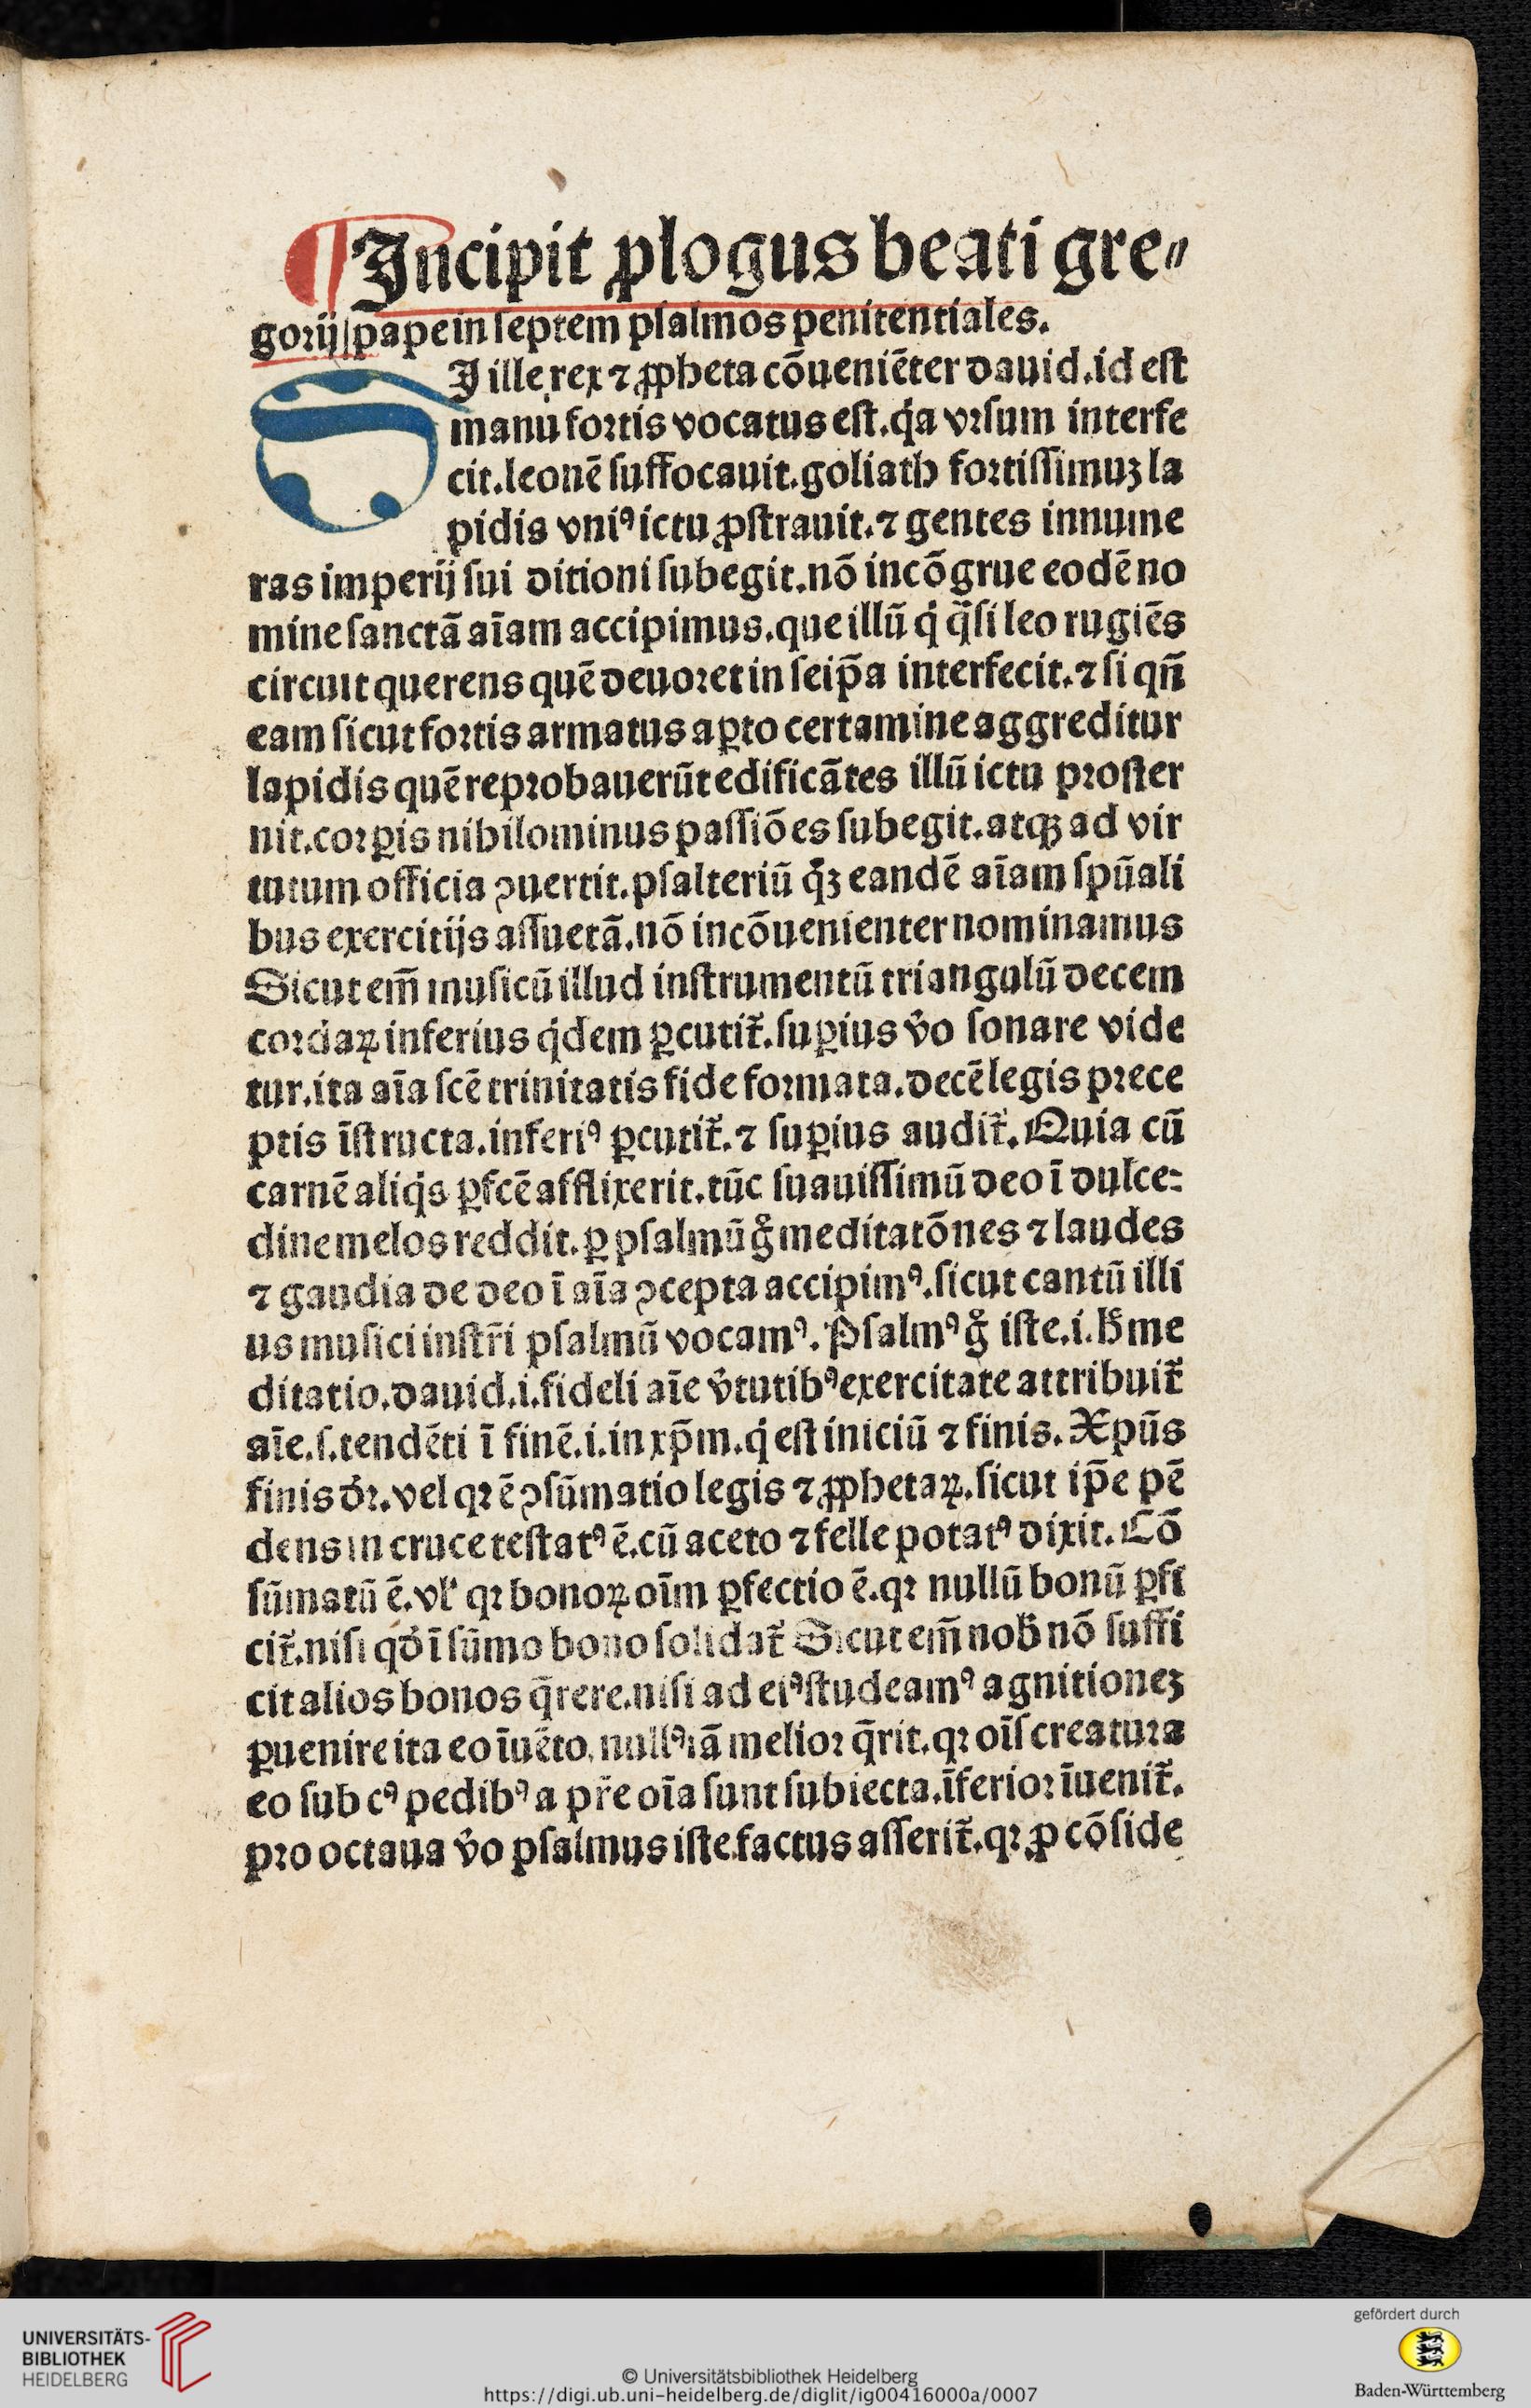 ¶Incipit ꝓlogus beati gre⸗
gorij pape in septem psalmos penitentiales.
SI ille rex ⁊ ꝓpheta cōueniēter dauid.id est
manu fortis vocatus est.qͥa vrsum interfe
cit.leonē suffocauit.goliath fortissimuꝫ la
pidis vniꝰ ictu ꝓstrauit.⁊ gentes innume
ras imperij sui ditioni subegit.nō incōgrue eodē no
mine sanctā aīam accipimus.que illū qͥ q̄si leo rugiēs
circuit querens quē deuoret in seip̄a interfecit.⁊ si qn̄
eam sicut fortis armatus aꝑto certamine aggreditur
lapidis quē reprobauerūt edificātes illū ictu proster
nit.corꝑis nihilominus passiōes subegit.atqꝫ ad vir
tutum officia ꝯuertit.psalteriū qͦꝫ eandē aīam spūali
bus exercitijs assuetā.nō incōuenienter nominamus
Sicut em̄ musicū illud instrumentū triangulū decem
cordaꝝ inferius qͥdem ꝑcutit᷑.suꝑius v̾o sonare vide
tur.ita aīa scē trinitatis fide formata.decē legis prece
ptis īstructa.inferiꝰ ꝑcutit᷑.⁊ suꝑius audit᷑.Quia cū
carnē aliqͥs ꝑfcē afflixerit.tūc suauissimū deo ī dulce⸗
dine melos reddit.ꝑ psalmū gͦ meditatōnes ⁊ laudes
⁊ gaudia de deo ī aīa ꝯcepta accipimꝰ.sicut cantū illi
us musici instr̄i psalmū vocamꝰ.Psalmꝰ gͦ iste.i.h̄ me
ditatio.dauid.i.fideli aīe v̾tutibꝰ exercitate attribuit᷑
aīe.s.tendēti ī finē.i.in xp̄m.qͥ est iniciū ⁊ finis.Xpūs
finis dr̄.vel qꝛ ē ꝯsūmatio legis ⁊ ꝓphetaꝝ.sicut ip̄e pē
dens in cruce testatꝰ ē.cū aceto ⁊ felle potatꝰ dixit.Cō
sūmatū ē.vl̕ qꝛ bonoꝝ oīm ꝑfectio ē.qꝛ nullū bonū ꝑfi
cit᷑.nisi qd̕ ī sūmo bono solidat᷑ Sicut em̄ nob̄ nō suffi
cit alios bonos q̄rere.nisi ad eiꝰ studeamꝰ agnitioneꝫ
ꝑuenire ita eo īuēto.nullꝰ iā melior q̄rit.qꝛ oīs creatura
eo sub cꝰ pedibꝰ a pr̄e oīa sunt subiecta.īferior īuenit᷑.
pro octaua v̾o psalmus iste factus asserit᷑.qꝛ ꝓ cōside
UNIVERSITÄTS-
BIBLIOTHEK
HEIDELBERG
© Universitätsbibliothek Heidelberg
https://digi.ub.uni-heidelberg.de/diglit/ig00416000a/0007
gefördert durch
Baden-Württemberg